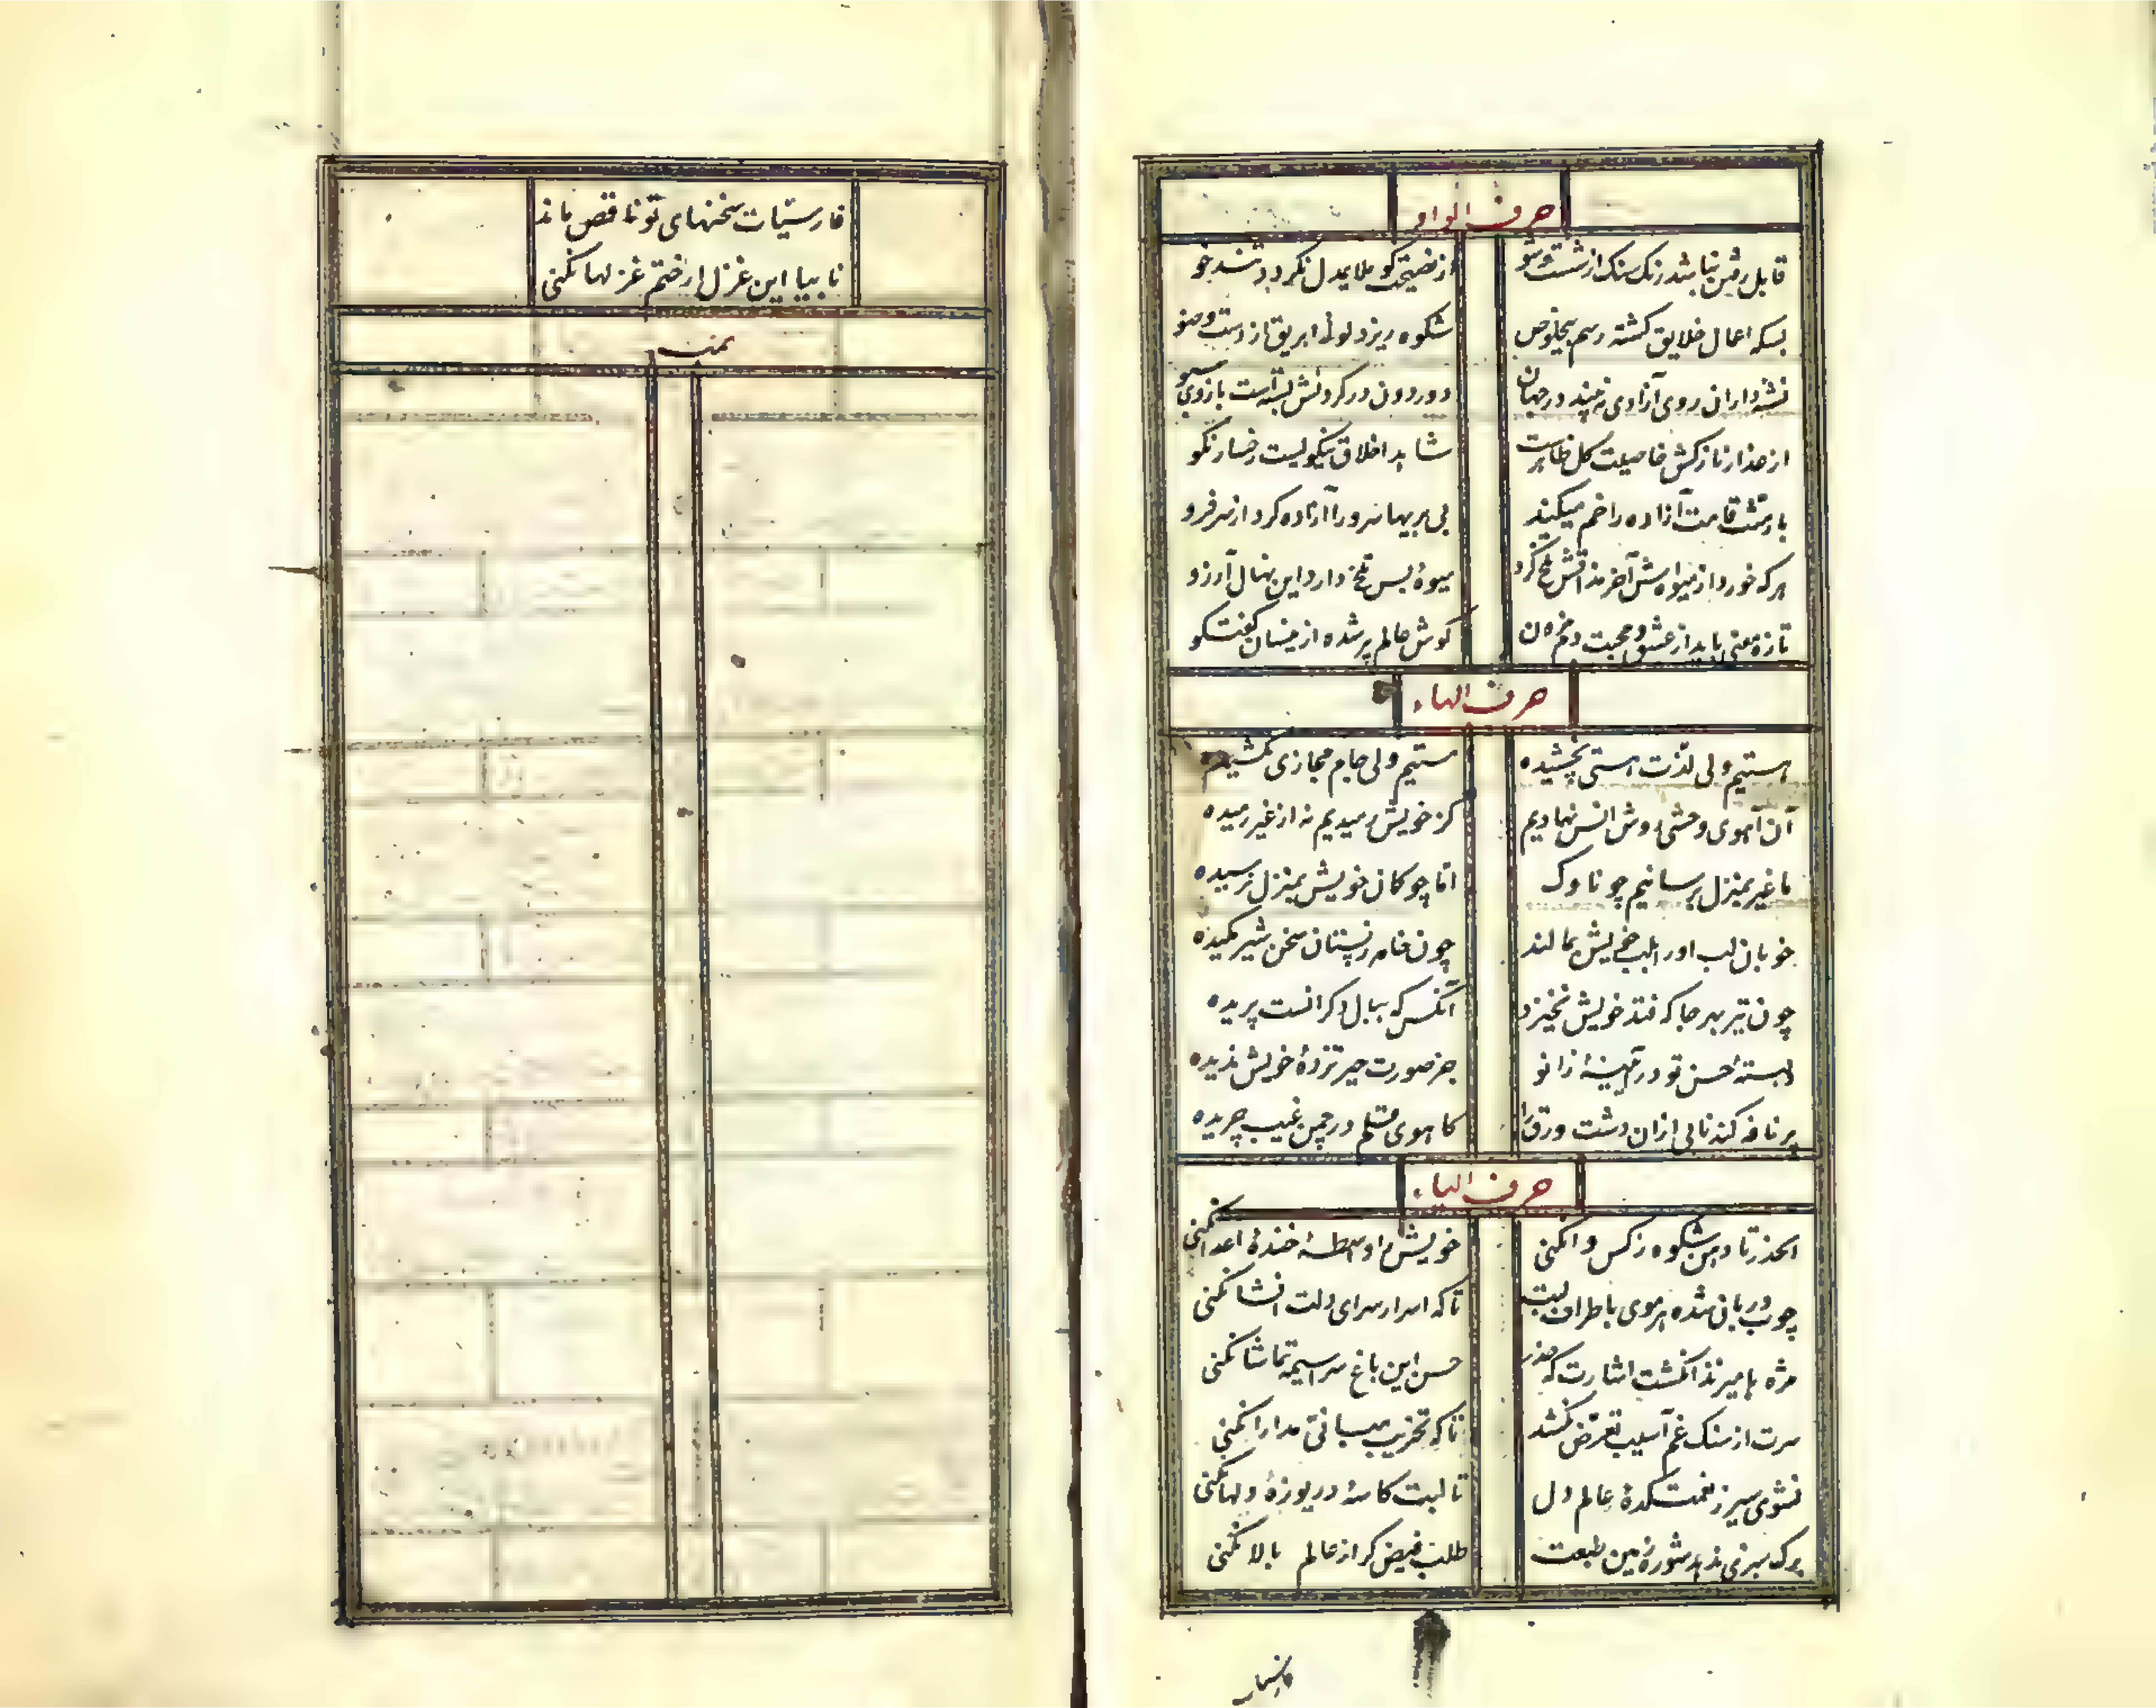 حرف الواو
قابل رفتن نباشد زنک سنک از شست وشو
از نصیحت کو ملایم دل نکردد تند خو
بسکه اعمال خلایق کشته رسم بیخلوص
شکوه ریزد لولهٔ ابریق از دست وضو
نشئه‌داران روی آزادی نه بیند در جهان
دور دون در کردنش بسته‌است بازوی سبو
از عذار نازکش خاصیت کل ظاهرست
شاهد اخلاق نیکو لیست رخسار نکو
بار منت قامت آزاده را خم میکند
بی بریها سرو را آزاده کرد از سر فرو
هر که خورد از میوه‌اش آخر مذاقش تلخ کرد
میوهٔ بس تلخ دارد این نهال آرزو
تازه معنی باید از عشق و محبت دم زدن
کوش عالم پر شده از کفتکو
حرف الهاء
هستیم ولی لذت هستی نچشیده
مستیم ولی جام مجازی نکشیده
آن آهوی وحشی روش انس نهادیم
کز خویش رمیدیم نه از غیر رمیده
ما غیر بمنزل برسانیم چو ناوک
اما چو کمان خویش بمنزل نرسیده
خوبان لب او را بلب خویش بمالند
چون خامه ز پستان سخن شیر مکیده
چون تیر بهر جا که فتد خویش نخیزد
آنکس که ببال دکرانست پریده
بستهٔ حسن تو در آیینهٔ زانو
جز صورت حیرتزدهٔ خویش ندیده
پر نافه کند نابی ازان دشت ورق را
کاهوی قلم در چمن غیب چریده
حرف الیاء
الحذر تا دهن شکوه ز کس وا نکنی
خویش را واسطهٔ خندهٔ اعدا نکنی
چوب دربان شده هر موی باطراف لبت
تا که اسرار سرای دلت افشا نکنی
مژه ها میزند انکشت اشارت که حذر
حسن این باغ سراسیمه تماشا نکنی
سرت از سنک غم آسیب تعرض نکشد
تا که تخریب مبانی مدارا نکنی
نشوی سیر ز نعمتکدهٔ عالم دل
تا لبت کاسهٔ دریوزهٔ دلها نکنی
برک سبزی ندهد شوره زمین طبعت
طلب فیض کر از عالم بالا نکنی
فارسیات سخنهای تو ناقص ماند
نابیا این غزل ار ختم غزلها نکنی
تمت